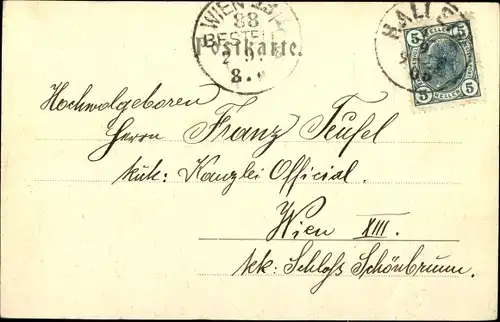 WIEN
88
BESTELLT
Postkarte.
HALL
5 5
HELLER
5 HELLER 5
Hochwolgeboren
Herrn Franz Teufel
kuk: Kanzlei Official.
Wien XIII.
kk: Schloss Schönbrunn.